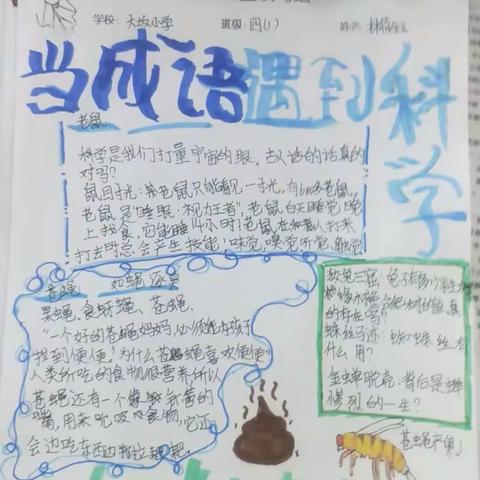 学校：大坟小学 班级：四(1) 姓名：林
当成语遇到科学
老鼠
科学是我们打量宇宙的眼，古人话的话真的
对吗？
鼠目寸光：老鼠只能看见一寸光，有600多老鼠。
老鼠是“睡眠·视力王者”，老鼠白天睡觉，晚
上找食，它能睡14小时！老鼠在和人打来
打去时总会产生技能！味觉，嗅觉听觉，触觉
苍蝇 如蝇逐臭
果蝇、食蚜蝇、苍蝇，
“一个好的苍蝇妈妈，必须能为孩子
找到便便！为什么苍蝇喜欢便便”
人类所吃的食物很营养，所以
苍蝇还有一个像 的
嘴，用来吮吸 食物，它还
会边吃东西边拉
狡兔三窟：兔子有多
缘木 会把 的鱼真
的存在吗？
蛛丝马迹：蜘蛛丝有
什么用？
金蝉脱壳：背后是蝉
爆烈的一生？
苍蝇产卵